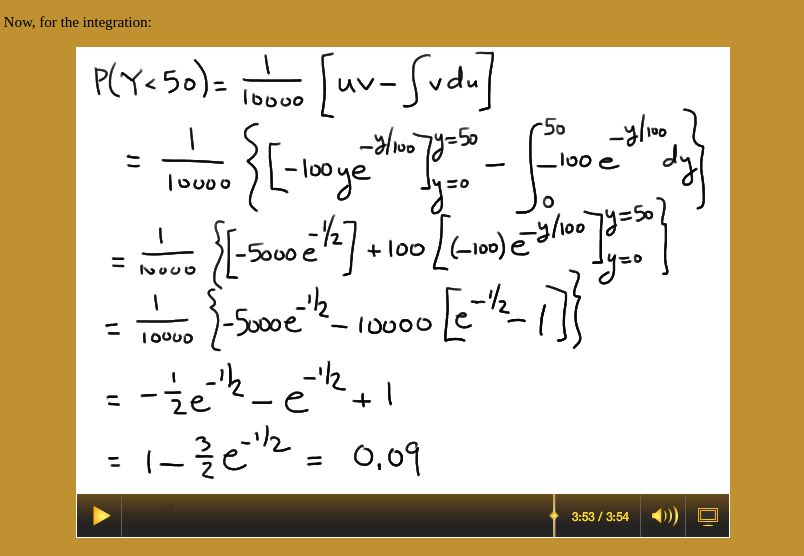 Now, for the integration:
P(Y<50)= 1/10000 [uv-∫vdu]
= 1/10000 {[-100ye^(-y/100)]_(y=0)^(y=50) - ∫_0^50 -100e^(-y/100) dy}
= 1/10000 {[-5000e^(-1/2)] + 100[(-100)e^(-y/100)]_(y=0)^(y=50)}
= 1/10000 {-5000e^(-1/2) - 10000[e^(-1/2) - 1]}
= -1/2 e^(-1/2) - e^(-1/2) + 1
= 1 - 3/2 e^(-1/2) = 0.09
3:53 / 3:54